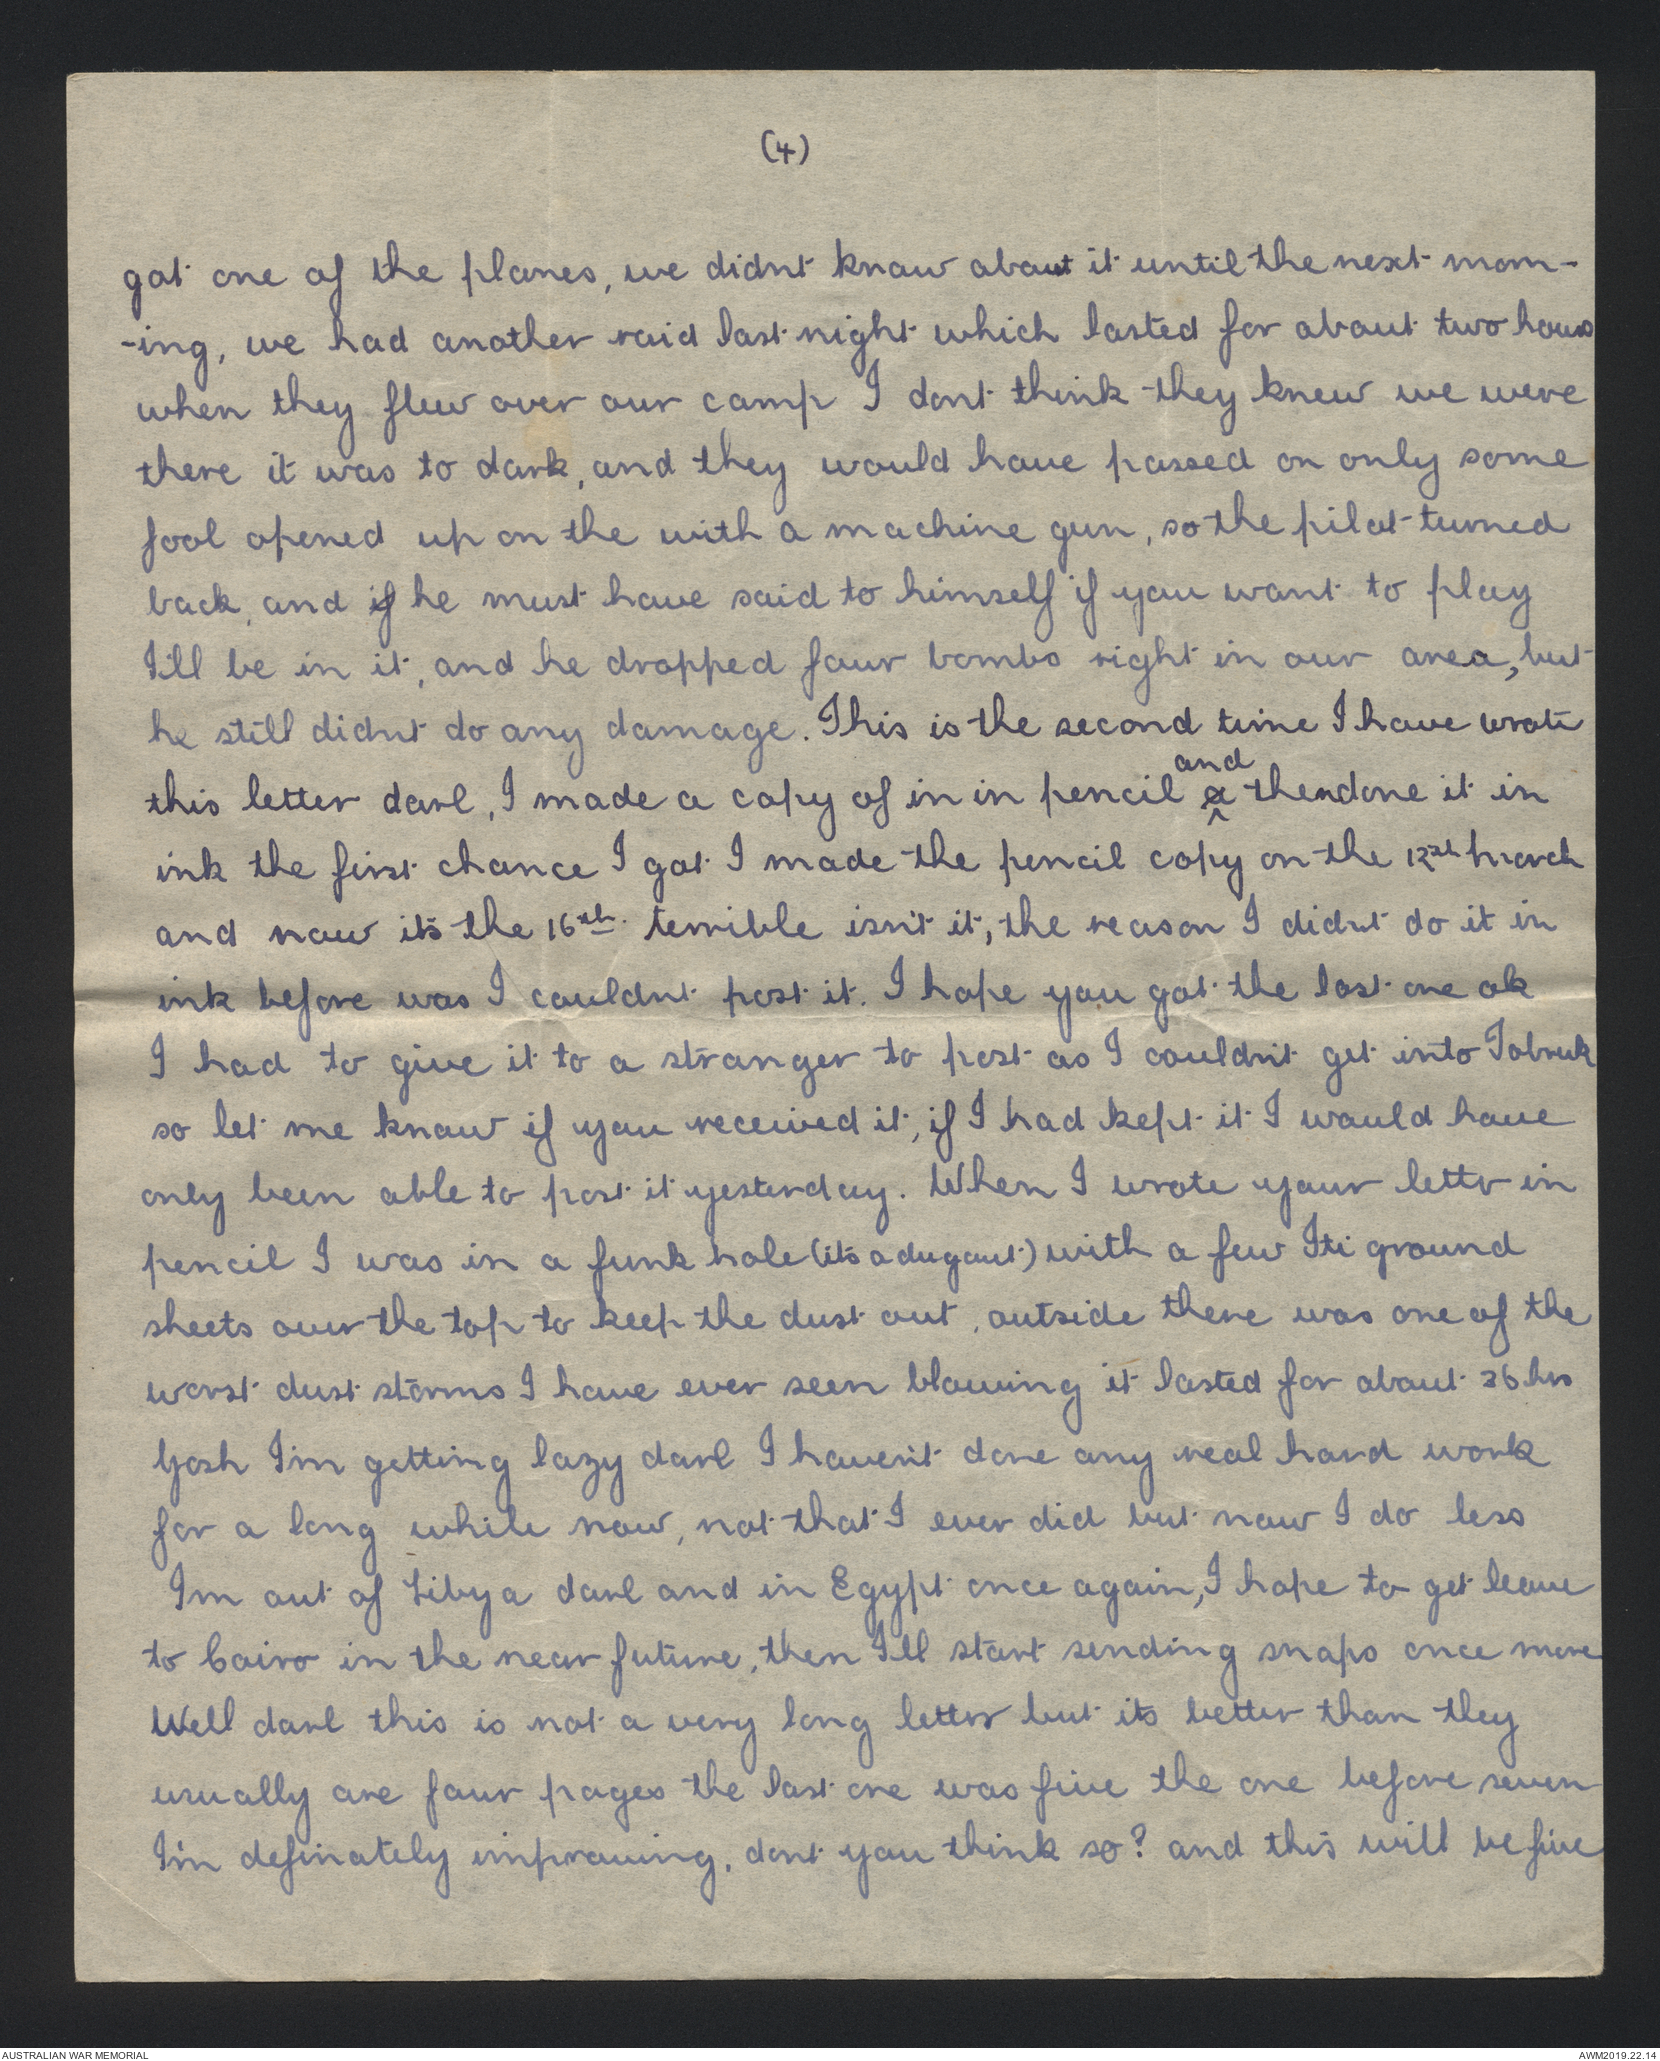 (4)
got one of the planes, we didnt know about it until the next morn-
-ing, we had another raid last night which lasted for about two hours
when they flew over our camp I dont think they knew we were
there it was to dark, and they would have passed on only some
fool opened up on the with a machine gun, so the pilot turned
back, and if he must have said to himself if you want to play
I'll be in it, and he dropped four bombs right in our area, but
he still didnt do any damage. This is the second time I have wrote
and
this letter darl, I made a copy of in in pencil a then done it in
ink the first chance I got I made the pencil copy on the March
and now its the 16th. terrible isn't it, the reason I didnt do it in
ink before was I couldnt post it. I hope you got the last one ok
I had to give it to a stranger to post as I couldn't get into Tobruk
so let me know if you received it, if I had kept it I would have
only been able to post it yesterday. When I wrote your lettr in
pencil I was in a funk hole (its a dugout) with a few Iti ground
sheets over the top to keep the dust out, outside there was one of the
worst dust storms I have ever seen blowing it lasted for about 36 hrs
Gosh I'm getting lazy darl I haven't done any real hard work
for a long while now, not that I ever did but now I do less
Im out of Libya darl and in Egypt once again, I hope to get leave
to Cairo in the near future, then I'll start sending snaps once more
Well darl this is not a very long letter but its better than they
usually are four pages the last one was five the one before seven
I'm definately improving, dont you think so? and this will be five
AUSTRALIAN WAR MEMORIAL
AWM2019.22.14